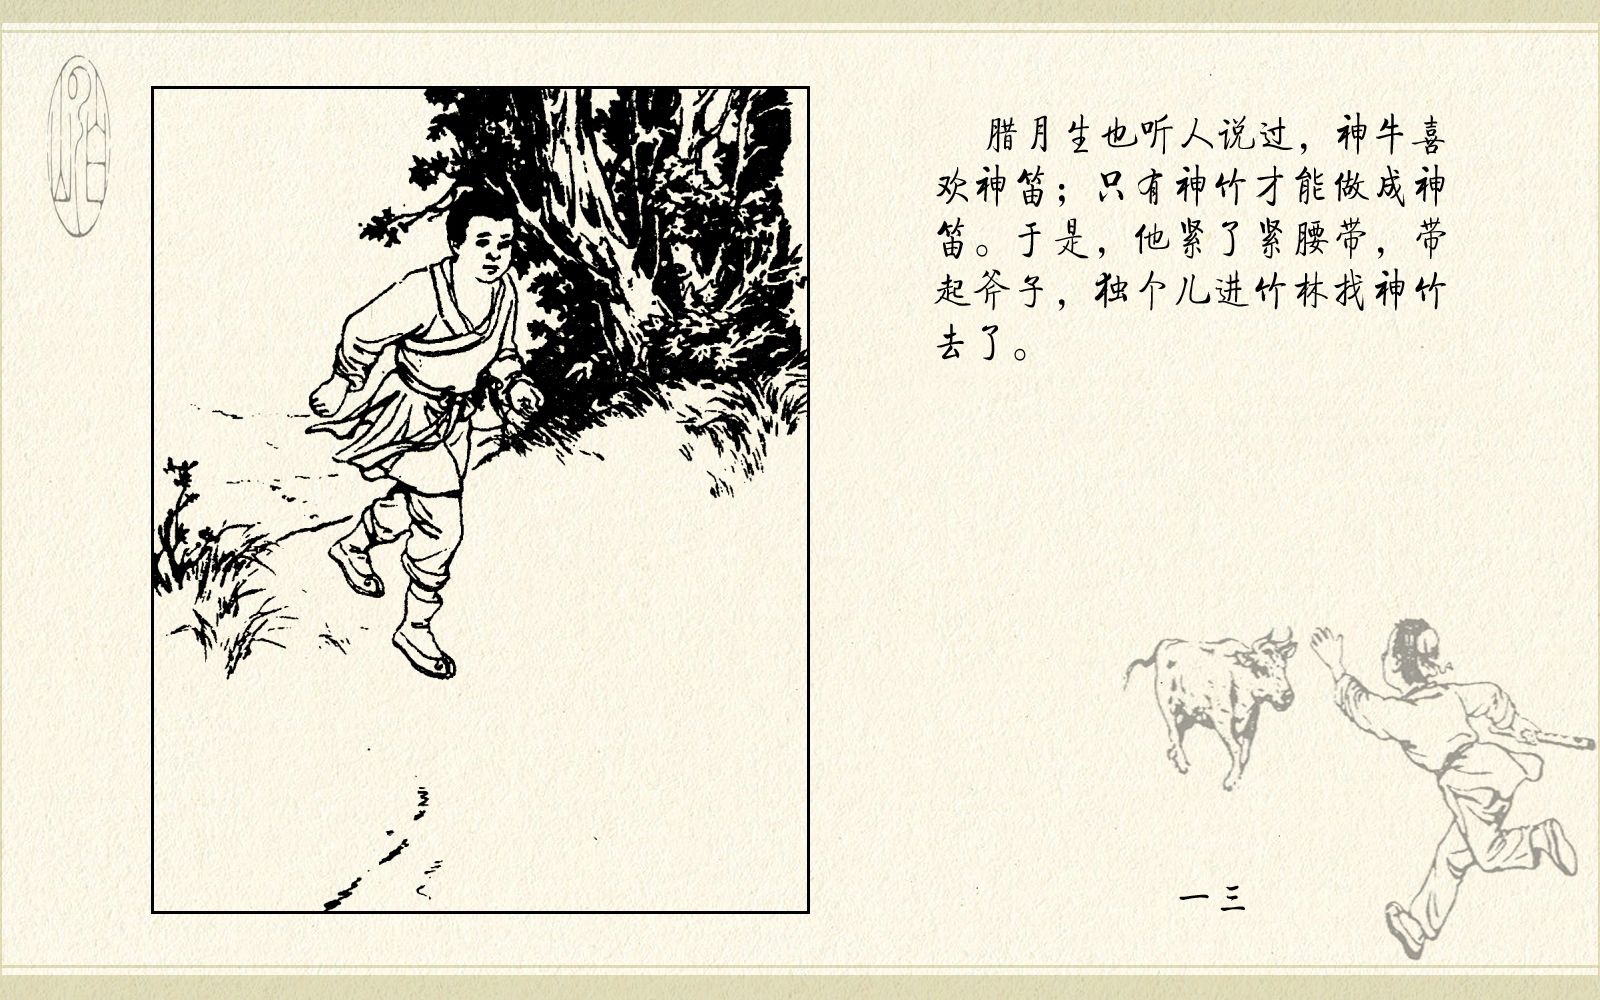 腊月生也听人说过，神牛喜
欢神笛；只有神竹才能做成神
笛。于是，他紧了紧腰带，带
起斧子，独个儿进竹林找神竹
去了。
一三